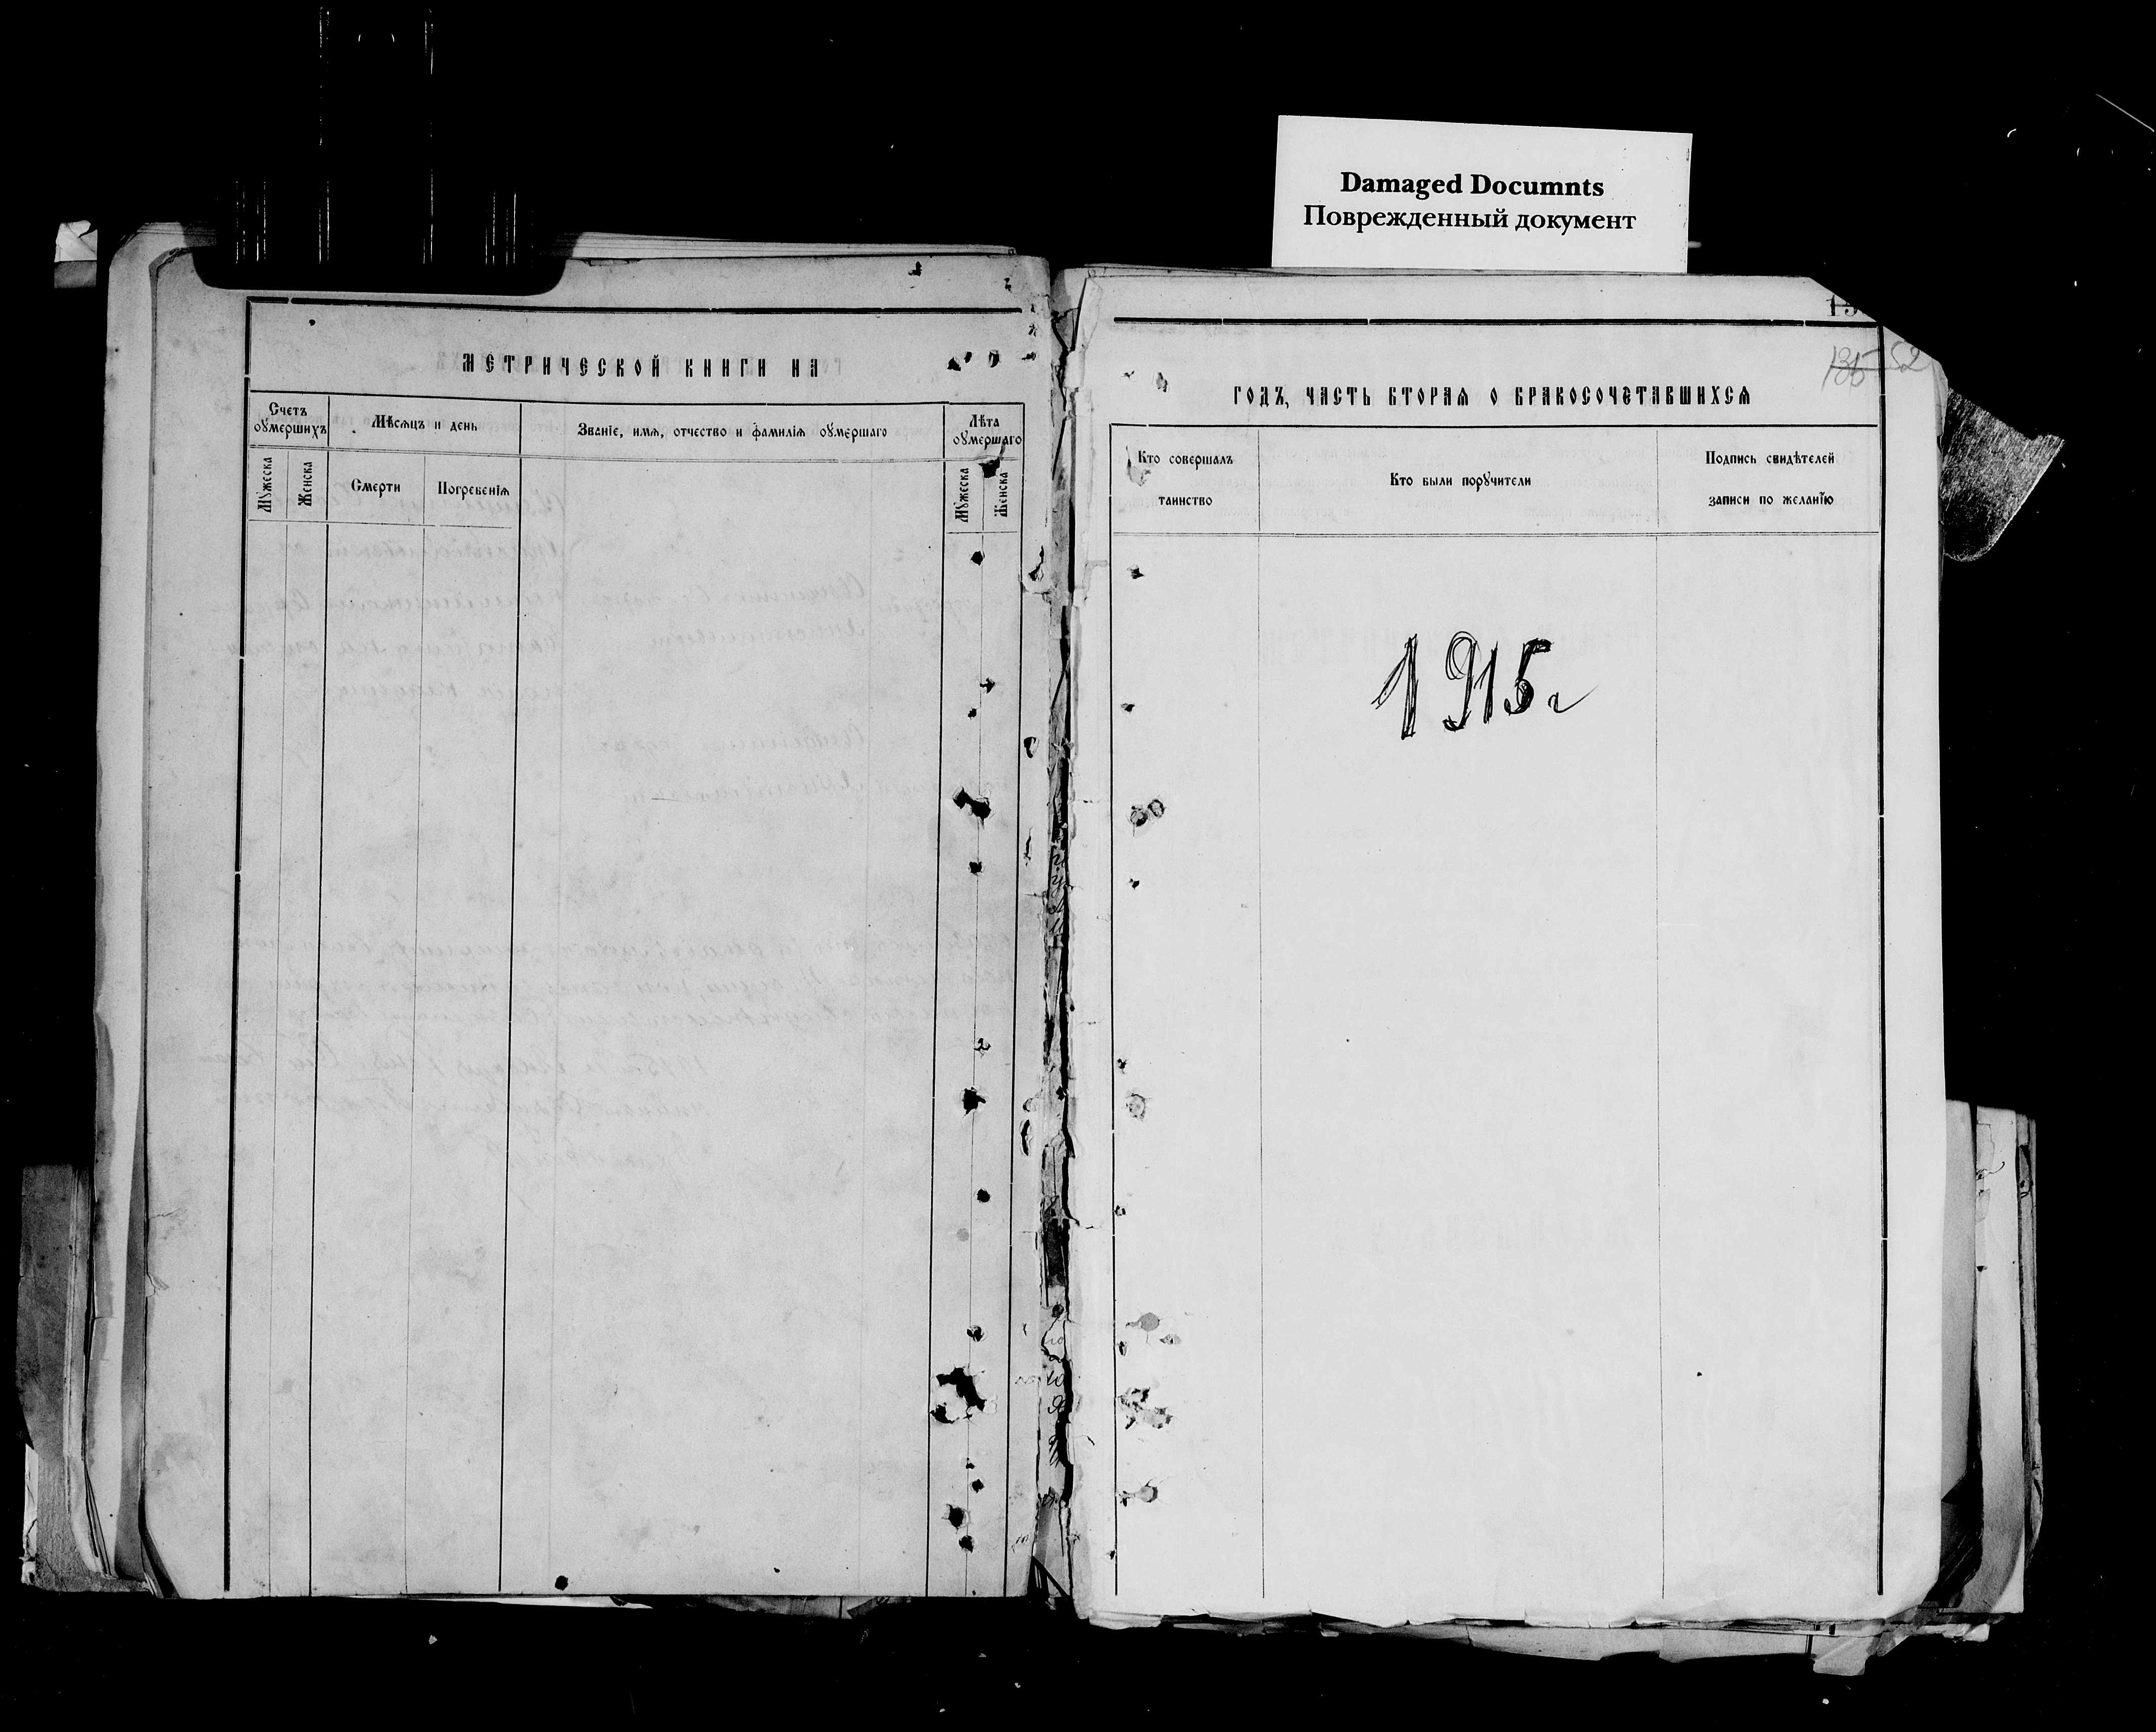 Damaged Documnts
Поврежденный документ
МЕТРИЧЕСКОЙ КНИГИ НА
Счетъ оумершихъ
Мѣсяцъ и день
Званіе, имя, отчество и фамилія оумершаго
Лѣта оумершаго
Мужеска
Женска
Смерти
Погребенія
Мужеска
Женска
52
ГОДЪ, ЧАСТЬ ВТОРАЯ О БРАКОСОЧЕТАВШИХСЯ
Кто совершалъ таинство
Кто были поручители
Подпись свидѣтелей записи по желанію
1915 г